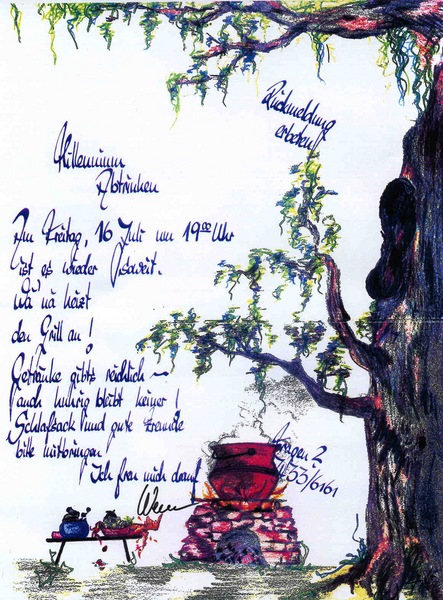 Rückmeldung
erbeten!
Millennium
Abtrinken
Am Freitag, 16 Juli um 19⁰⁰ Uhr
ist es wieder soweit.
heizt
den Grill an!
Getränke gibts reichlich –
auch hungrig bleibt keiner!
Schlafsack und gute Freunde
bitte mitbringen!
Ich freu mich drauf
Fragen?
53/6161